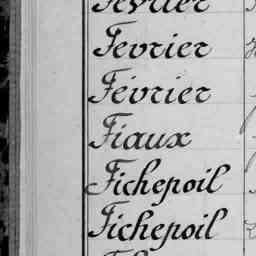 Fevrier
Fevrier
Février
Fiaux
Fichepoil
Fichepoil